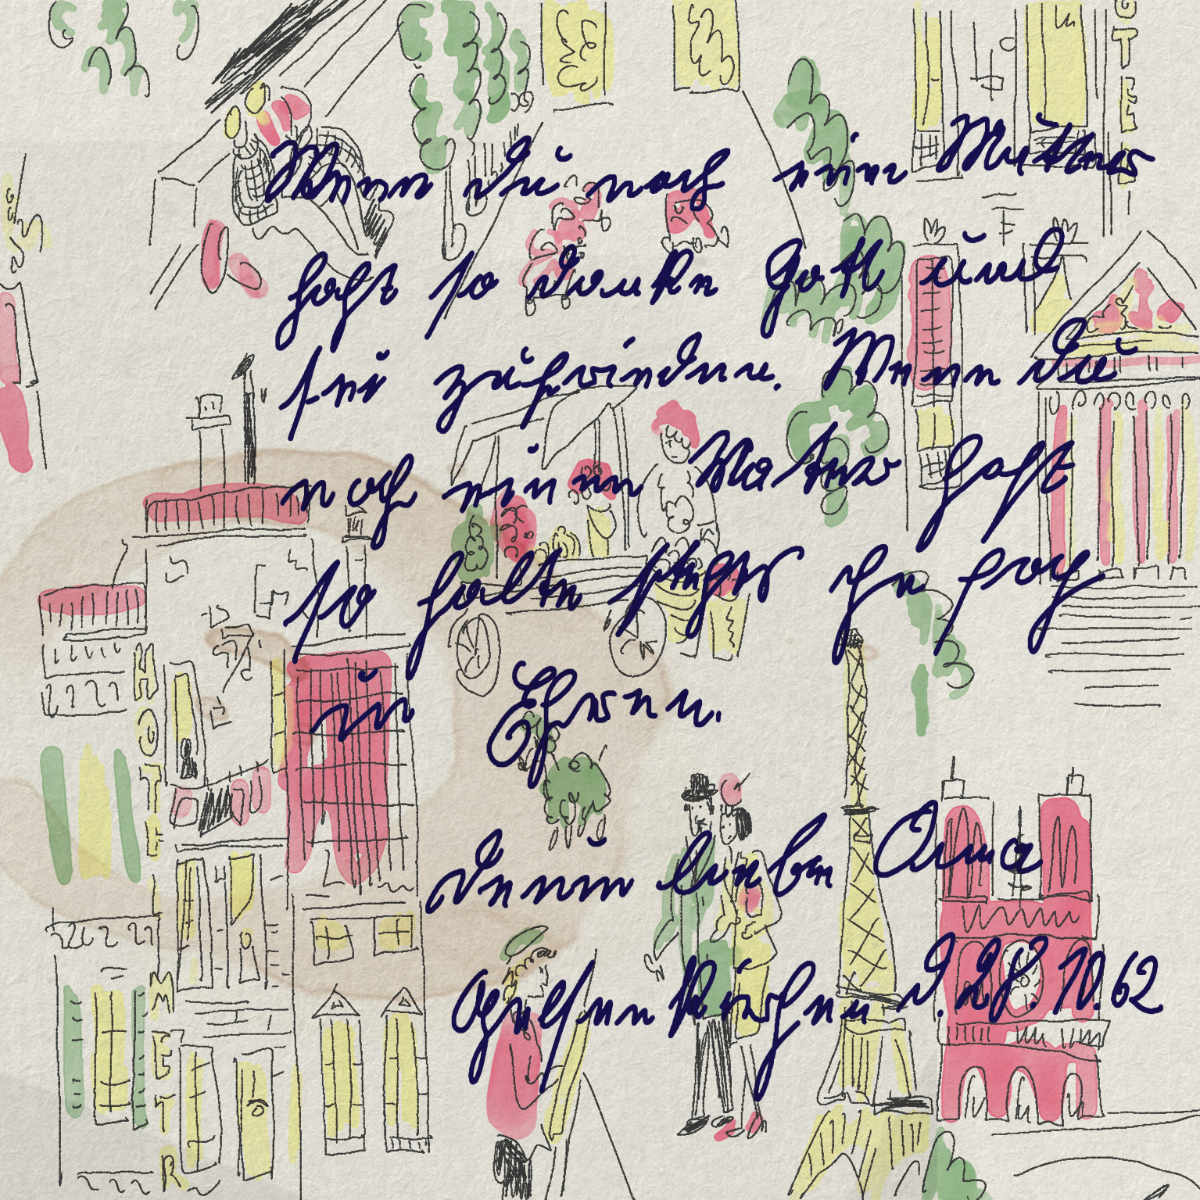 Wenn du noch eine Mutter
hast so danke Gott und
sei zufrieden. Wenn du
noch einen Vater hast
so halte stets ihn hoch
in Ehren.
Deine liebe Oma
Gelsenkirchen d. 28. 10. 62
HOTEL